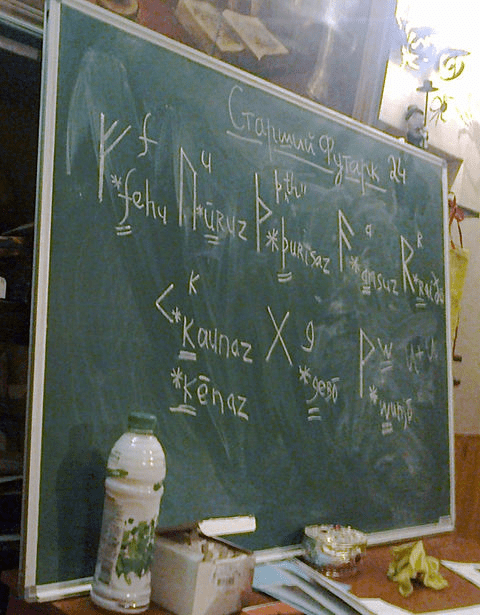 Старший Футарк 24
ᚠ f ᚢ u ᚦ þ,th" ᚨ a ᚱ R
*fehu *ūruz *þurisaz *ansuz *Raiđo
ᚲ K ᚷ g ᚹ w
*Kaunaz *gebō *wunjō
*Kēnaz